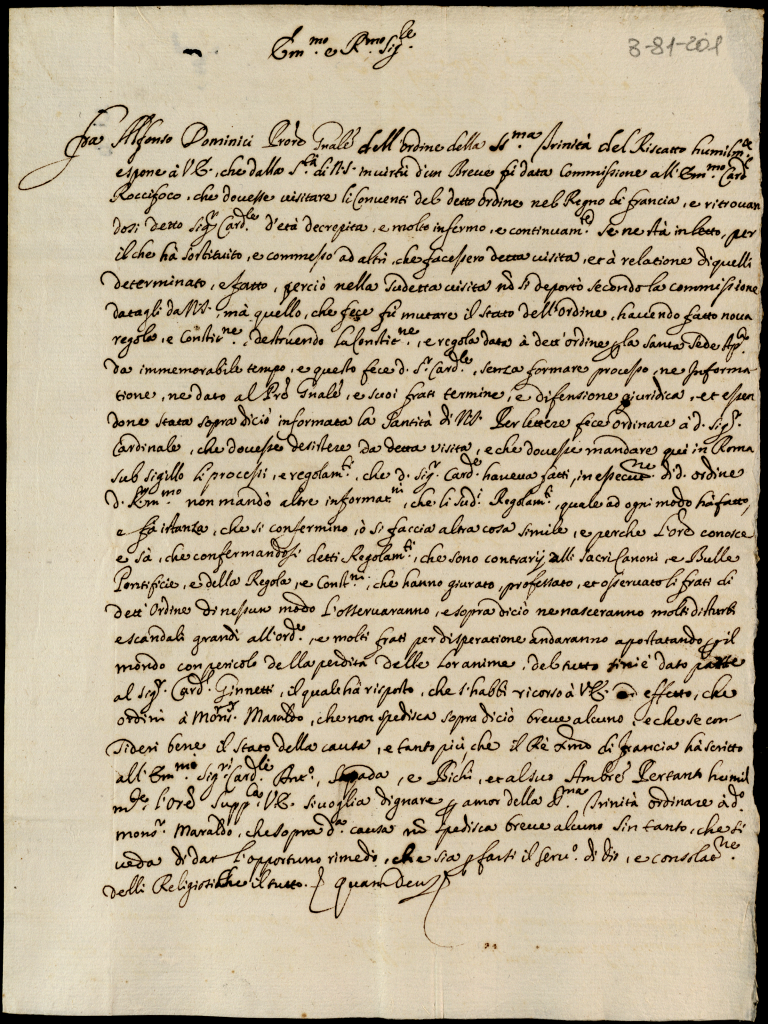 3-81-201
Em.mo e R.mo Sig.re
Fra Alfonso Dominici Pro.re Gnale dell'ordine della SS.ma Trinità del Riscatto humilm.te
espone à V.E., che dalla S.tà di N.S. in virtù d'un Breve fù data Commissione all'Em.mo Card.
Roccifoco, che dovesse visitare li Conventi del detto ordine nel Regno di francia, e ritrovan
dosi detto Sig.r Card.le d'età decrepita, e molto infermo, e continuam.te se ne stà in letto, per
il che hà sostituito, e commesso ad altri, che facessero detta visita, et à relatione di quelli
determinato, e fatto, perciò nella sudetta visita nō si deportò secondo la commissione
datagli da N.S., mà quello, che fece fù mutare il stato dell'ordine, havendo fatto nova
regola, e Constit.ne, destruendo la Constit.ne, e regola data à dett'ordine p la Santa Sede Ap.ca
da immemorabile tempo, e questo fece d. S.r Card.le, senza formare processo, ne Informa
tione, ne dato al Prō Gnale, e suoi frati termine, e difensione giuridica, et essen
done stata sopra di ciò informata la Santità di N.S. Per lettere fece ordinare à d. Sig.r
Cardinale, che dovesse desistere da detta visita, e che dovesse mandare qui in Roma
sub sigillo li processi, e regolam.ti, che d. Sig.r Card.le haveva fatti, in esecut.ne di d. ordine
d. Em.mo non mandò altre informat.ni, che li sud.i Regolam.ti, quale ad ogni modo hà fatto,
e fà istanza, che si confermino, ò si faccia altra cosa simile, e perche l'Ore conosce
e sà, che confermandosi detti Regolam.ti, che sono contrarij alli sacri Canoni, e Bulle
Pontificie, e della Regola, e Const.ni, che hanno giurato, professato, et osservato li frati di
dett'Ordine di nessun modo l'osservaranno, e sopra di ciò ne nasceranno molti disturbi
e scandali grandi all'ord.e, e molti frati per disperatione andaranno apostatando p il
mondo con pericolo della perdita delle lor anime, del tutto si n'è dato parte
al Sig.r Card.l Ginnetti, il quale hà risposto, che s'habbi ricorso à V.E. effetto, che
ordini à Mons.r Maraldo, che non spedisca sopra di ciò breve alcuno, e che se con-
sideri bene il stato della causa, e tanto più che il Rè Xmo di francia hà scritto
all'Em.mi Sig.ri Card.li Ant.o, Spada, e Bichi, et al suo Ambre Pertanto humil
m.te l'Ore supp.ca V.E. si voglia dignare p amor della S.ma Trinità ordinare à d.o
mons.r Maraldo, che sopra d.a causa nō spedisca breve alcuno sin tanto, che si
veda di dar l'opportuno rimedio, che sia p farsi il serv.o di Dio, e consolat.ne
delli Religiosi che il tutto. quam Deus